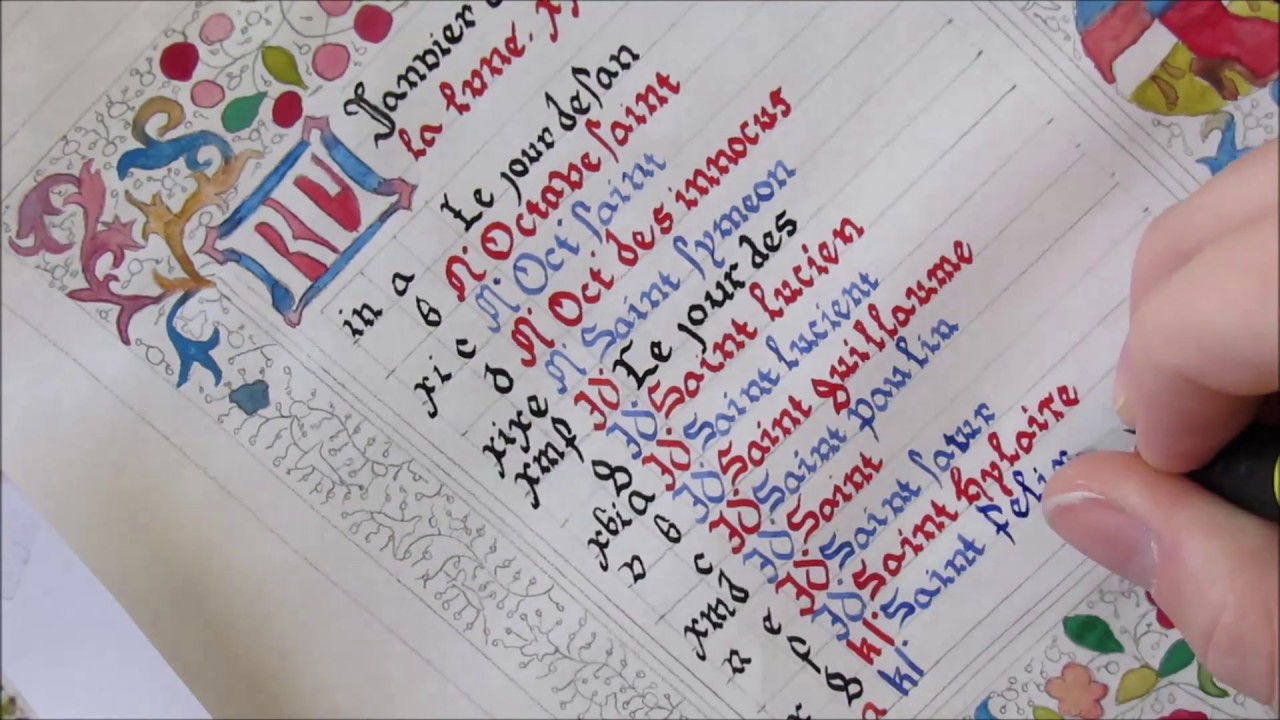 Janvier
la lune.
in a Le jour de lan
b N' Octave saint
xi c N' Oct saint
d N' Oct des innocus
xix e N' Saint symeon
xm f Id. Le jour des
g Id. Saint lucien
xbi a Id. Saint lucient
v b Id. Saint Guillaume
c Id. Saint Paulin
xm d Id. Saint
n e Id. Saint satur
f Id. Saint hylaire
g kl. Saint felin
a kl.